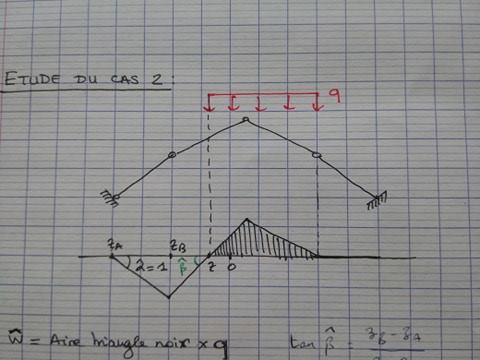 ETUDE DU CAS 2 :
q
zA zB
λ=1 β̂ z O
Ŵ = Aire triangle noir × q
tan β̂ = zB - zA